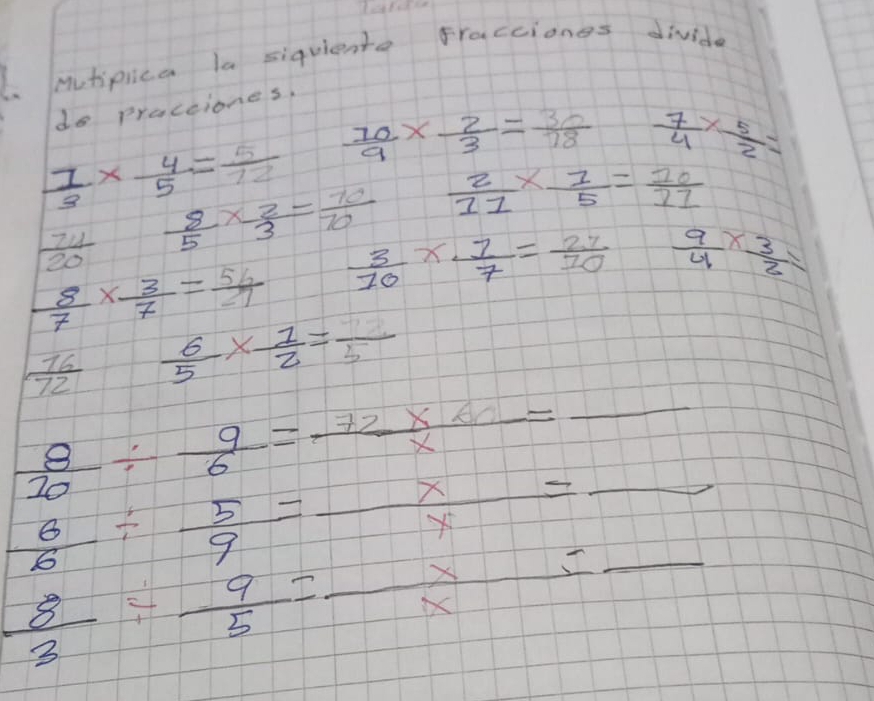 Mutiplica la siquiente Fracciones divide
de Fracciones.
1/3 × 4/5 = 5/12 10/9 × 2/3 = 30/18 7/4 × 5/2 =
14/20 8/5 × 2/3 = 10/10 2/11 × 1/5 = 10/11
8/7 × 3/7 = 56/21 3/10 × 1/7 = 21/10 9/4 × 3/2 =
16/12 6/5 × 1/2 = 12/5
8/10 ÷ 9/6 = 72 × 60/× =
6/6 ÷ 5/9 = ×/× =
8/3 ÷ 9/5 = ×/× =